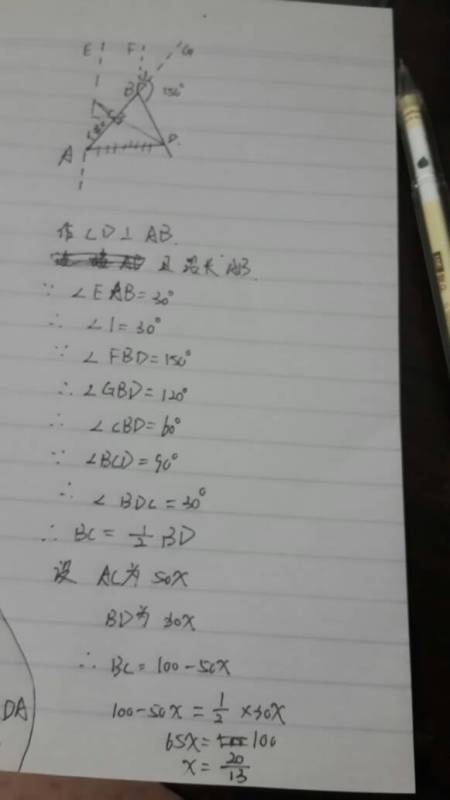 E F G
B 150°
C
30°
A D
作 CD⊥AB.
且 延长 AB.
∵ ∠EAB=30°
∴ ∠1=30°
∵ ∠FBD=150°
∴ ∠GBD=120°
∴ ∠CBD=60°
∵ ∠BCD=90°
∴ ∠BDC=30°
∴ BC=1/2 BD
设 AC为 50x
BD为 30x
∴ BC=100-50x
100-50x=1/2×30x
65x=100
x=20/13
DA